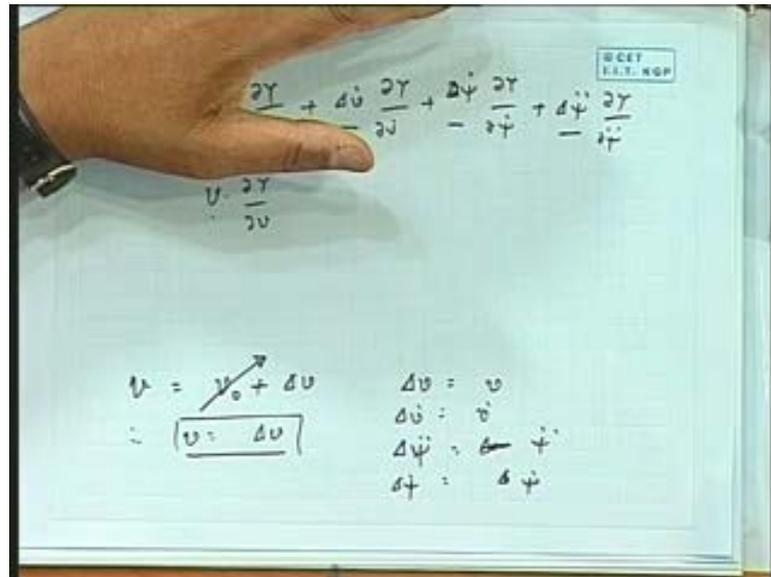 © CET
I.I.T. KGP
∂Y + Δv̇ ∂Y/∂v̇ + Δψ̇ ∂Y/∂ψ̇ + Δψ̈ ∂Y/∂ψ̈
v · ∂Y/∂v
v = v₀ + Δv
∴ v = Δv
Δv = v
Δv̇ = v̇
Δψ̈ = ψ̈
Δψ̇ = Δ ψ̇